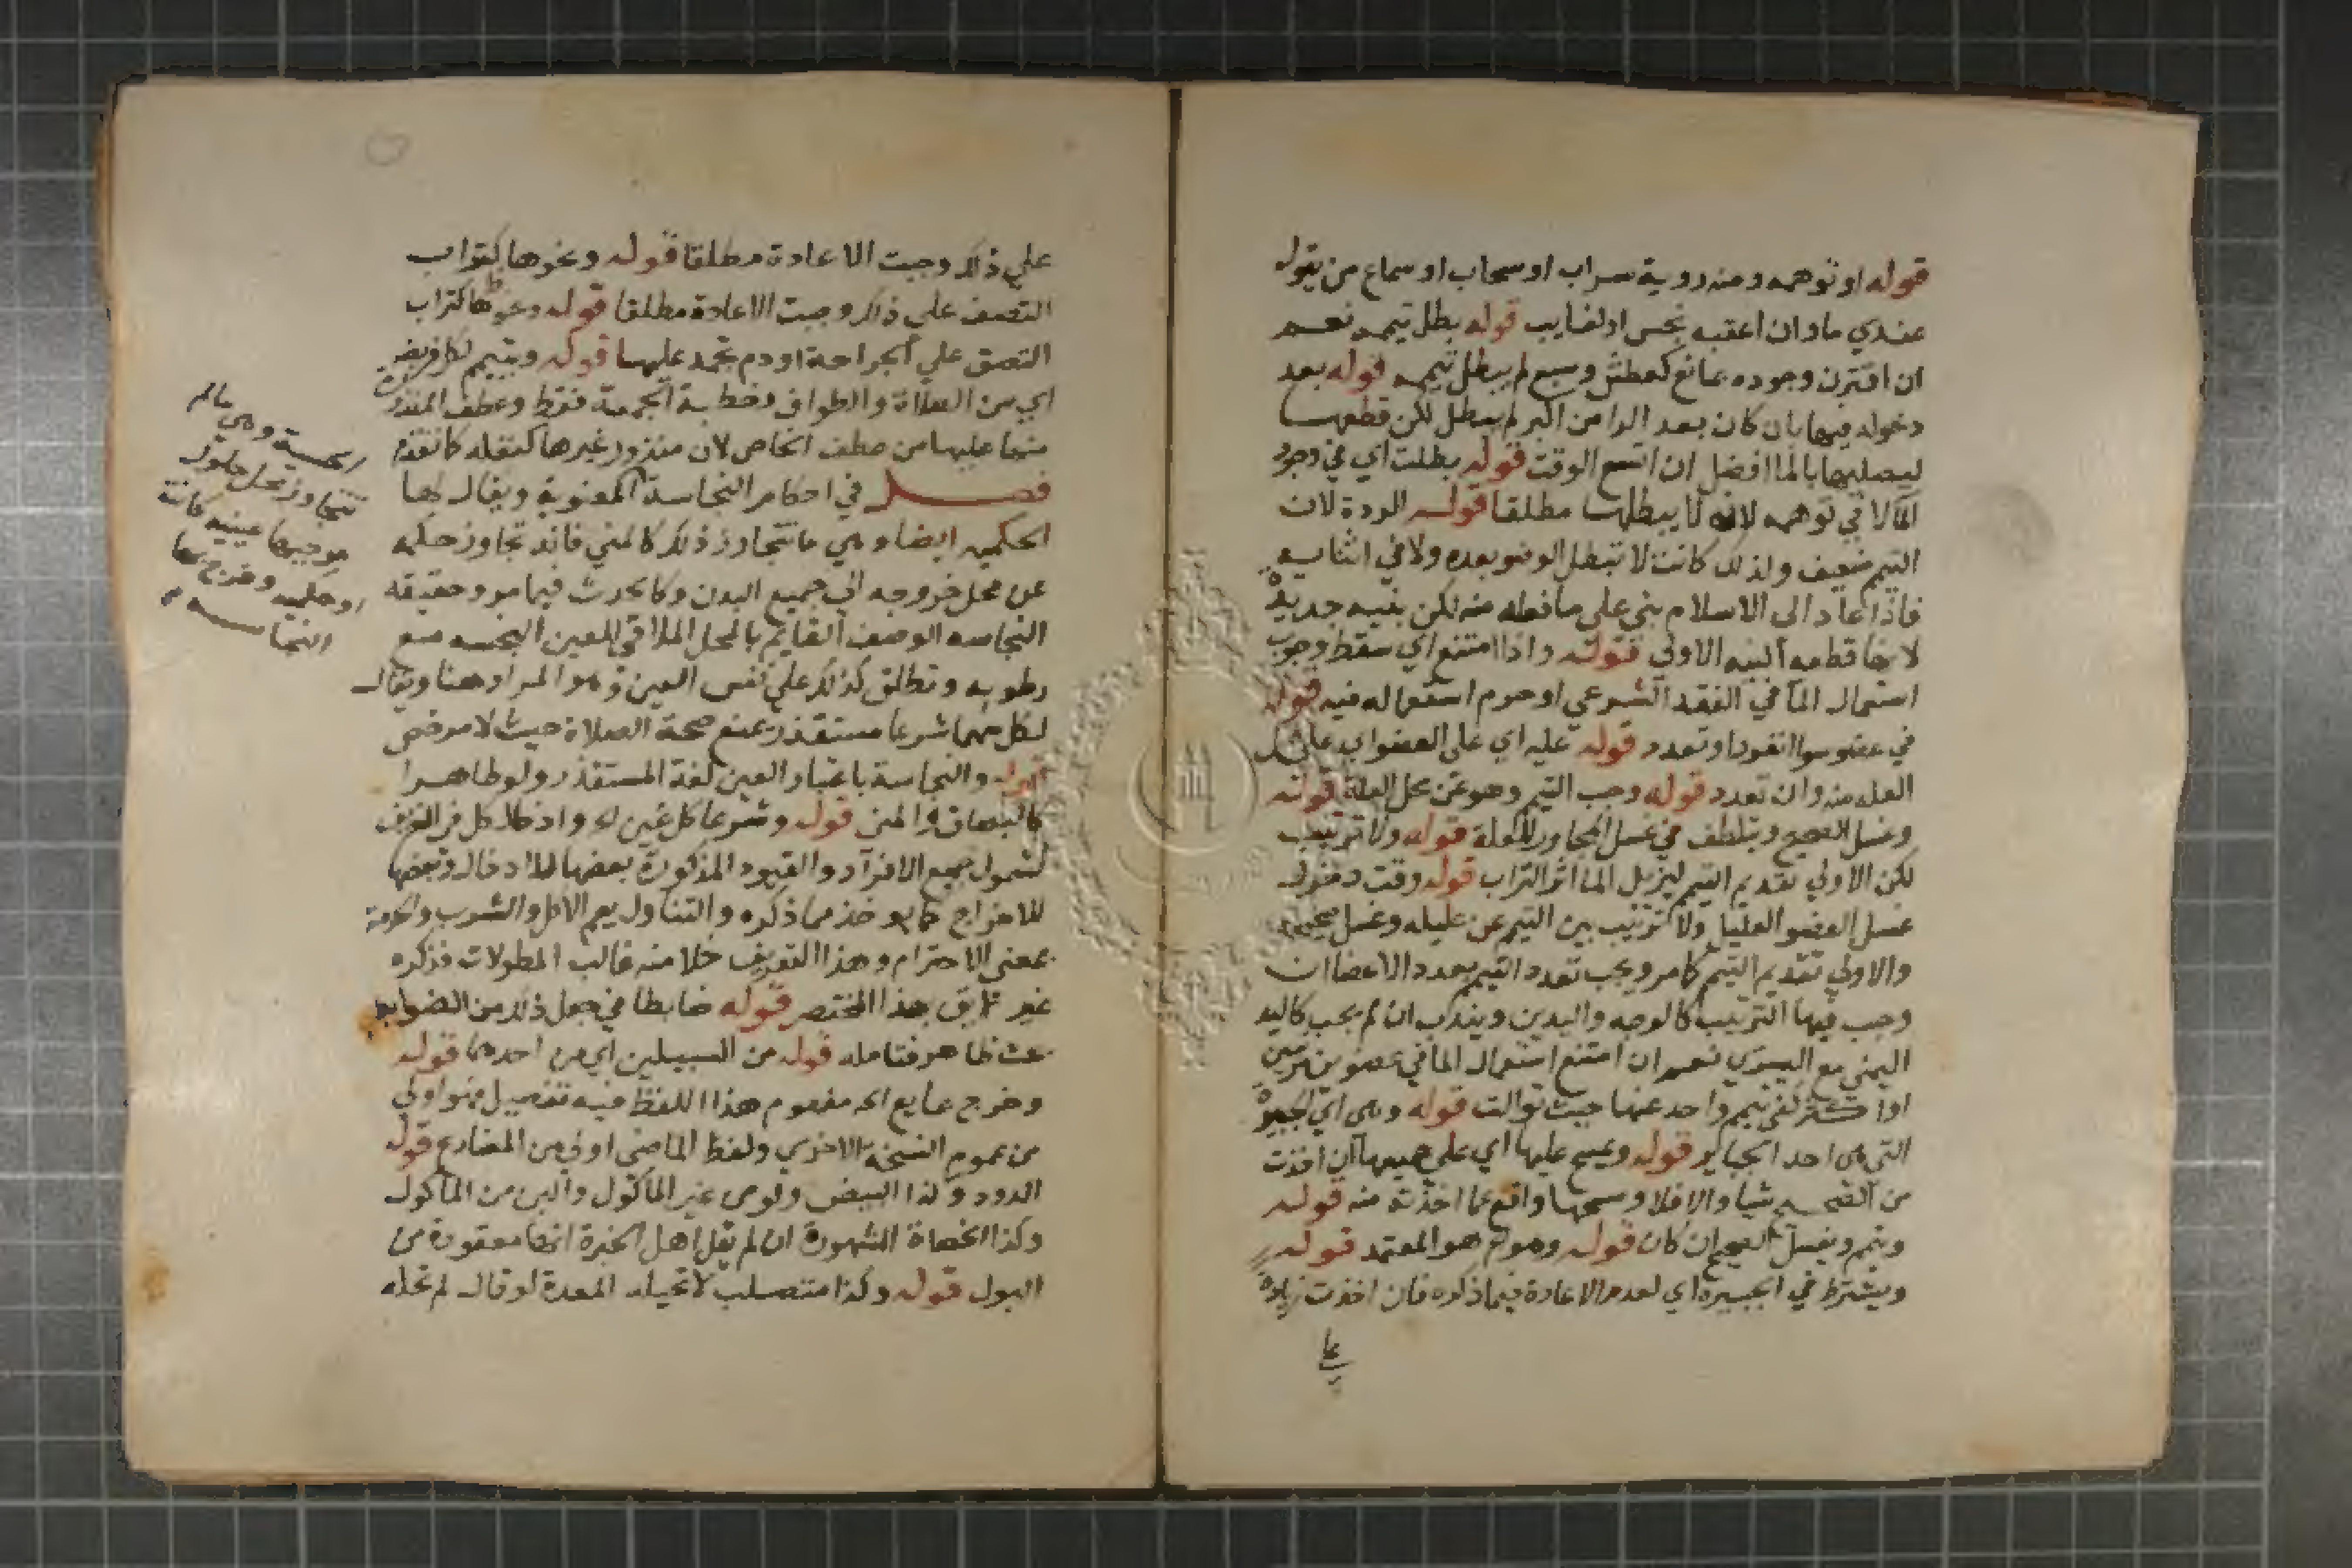 قوله او توهمه ومنه روية سراب او سحاب او سماع من يقول
عندي ما وان اعقبه بنجس او لغايب قوله بطل تيممه نعم
ان اقترن وجوده بمانع كعطش وسبع لم يبطل تيممه قوله بعد
دخوله فيها بان كان بعد الرا من اكبر لم يبطل لكن قطعها
ليصليها بالما افضل ان اتسع الوقت قوله بطلت اي في وجود
الما لا في توهمه لانه لا يبطلها مطلقا قوله الردة لان
التيمم ضعيف ولذلك كانت لا تبطل الوضو بعده ولا في اثنايه
فاذا عاد الى الاسلام بنى على ما فعله منه لكن بنيه جديدة
لانها قطعه النيه الاولي قوله واذا امتنع اي سقط وجوب
استعمال الما في الفقد الشرعي او حرم استعماله فيه قوله
في عضو سوا انفرد او تعدد قوله عليه اي على العضو اي على محل
العله منه وان تعدد قوله وجب التيمم وهو عن محل العلة قوله
وغسل الصحيح ويتلطف في غسل المجاور للعلة قوله ولا ترتيب
لكن الاولي تقديم التيمم ليزيل الما اثر التراب قوله وقت دخول
غسل العضو العليل ولا ترتيب بين التيمم عن عليله وغسل صحيحه
والاولي تقديم التيمم كما مر ويجب تعدد التيمم بعدد الاعضا ان
وجب فيها الترتيب كالوجه واليدين ويندب ان لم يجب كاليد
اليمني مع اليسري نعم ان امتنع استعمال الما في عضوين مرتبين
او اكثر كفي تيمم واحد عنها حيث توالت قوله وهى اي الجبيرة
التي هى احد الجباير قوله ويمسح عليها اي على جميعها ان اخذت
من الصحيح شيا والا فلا ومسحها واقع عما اخذته منه قوله
ويتمم ويغسل الصحيح ان كان قوله وهو هو المعتمد قوله
ويشترط في الجبيرة اي لعدم الاعادة فيما ذكره فان اخذت زيادة
على
علي ذلك وجبت الاعادة مطلقا قوله ونحوها كتراب
التصق علي ذلك وجبت الاعادة مطلقا قوله ونحوها كتراب
التصق علي الجراحة او دم تجمد عليها قوله ويتيمم لكل فريضه
اي من الصلاة والطواف وخطبة الجمعة فقط وعطف المنذورة
منها عليها من عطف الخاص لان منذور غيرها كنفله كما تقدم
فصل في احكام النجاسة المعنوية ويقال لها
الحكميه ايضا وهي ما تتجاوز ذلك كالمني فانه تجاوز حكمه
عن محل خروجه الى جميع البدن وكالحدث فيما مر وحقيقه
النجاسه الوصف القايم بالمحل الملاقي للعين النجسه مع
رطوبه وتطلق كذلك على نفس العين وهو المراد هنا ويقال
لكل منهما شرعا مستقذر يمنع صحة الصلاة حيث لا مرخص
قوله والنجاسة باعتبار العين لغة المستقذر ولو طاهرا
كالبصاق والمني قوله وشرعا كل عين الخ وادخال كل في التعريف
لشمول جميع الافراد والقيود المذكورة بعضها للادخال وبعضها
للاخراج كما يوخذ مما ذكره والتناول يعم الاكل والشرب والحرمة
بمعنى الاحترام وهذا التعريف خلا منه غالب المطولات فذكره
غير لايق بهذا المختصر قوله ضابطا في جعل ذلك من الضوابط
بحث ظاهر فتامله قوله من السبيلين اي من احدهما قوله
وخرج بمايع الخ مفهوم هذا اللفظ فيه تفصيل فهو اولي
من عموم النسخة الاخري ولفظ الماضي اولى من المضارع قوله
الدود وكذا البيض ولو من غير الماكول والبن من الماكول
وكذا الحصاة المشهورة ان لم يقل اهل الخبرة انها معقودة من
البول قوله وكذا متصلب لا تحيله المعدة لو قال لم تحله
الحسية وهى مالم
تتجاوز محل حلول
موجبها عينيه كانت
او حكميه وخرج بها
النجاسه